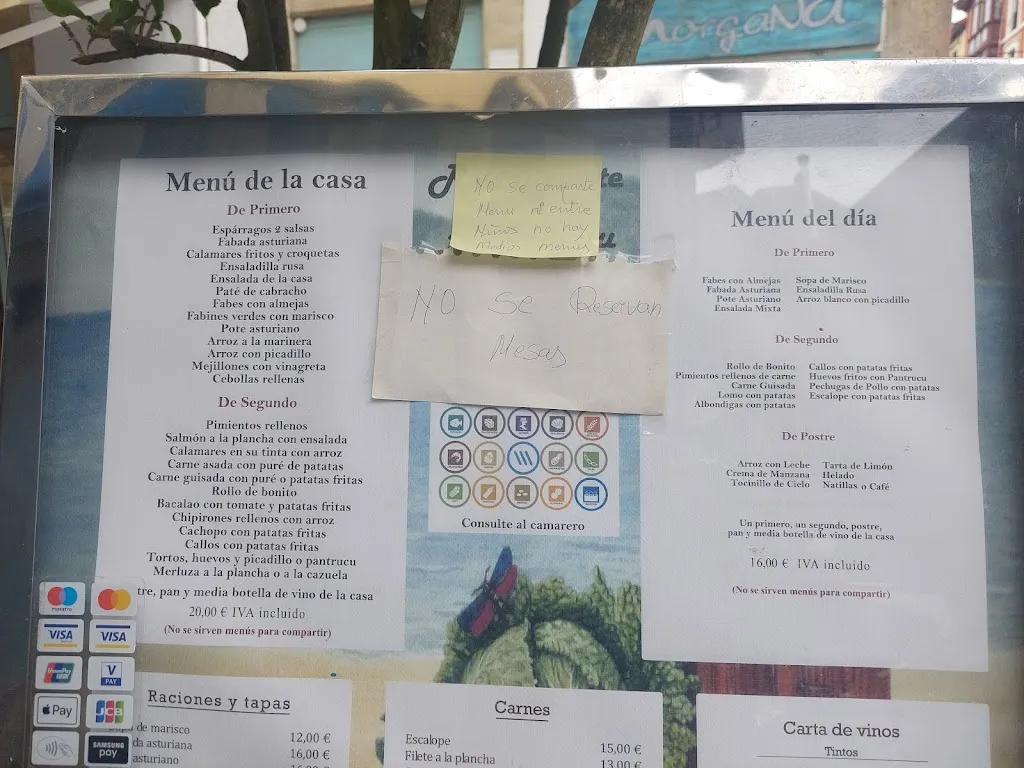 morgana
Menú de la casa
De Primero
Espárragos 2 salsas
Fabada asturiana
Calamares fritos y croquetas
Ensaladilla rusa
Ensalada de la casa
Paté de cabracho
Fabes con almejas
Fabines verdes con marisco
Pote asturiano
Arroz a la marinera
Arroz con picadillo
Mejillones con vinagreta
Cebollas rellenas
De Segundo
Pimientos rellenos
Salmón a la plancha con ensalada
Calamares en su tinta con arroz
Carne asada con puré de patatas
Carne guisada con puré o patatas fritas
Rollo de bonito
Bacalao con tomate y patatas fritas
Chipirones rellenos con arroz
Cachopo con patatas fritas
Callos con patatas fritas
Tortos, huevos y picadillo o pantrucu
Merluza a la plancha o a la cazuela
tre, pan y media botella de vino de la casa
20,00 € IVA incluido
(No se sirven menús para compartir)
maestro
VISA VISA
UnionPay
V PAY
Pay JCB
SAMSUNG pay
No se comparte
Menu ni entre
Niños no hay
Medios menus
No se Reservan
Mesas
Consulte al camarero
Menú del día
De Primero
Fabes con Almejas Sopa de Marisco
Fabada Asturiana Ensaladilla Rusa
Pote Asturiano Arroz blanco con picadillo
Ensalada Mixta
De Segundo
Rollo de Bonito Callos con patatas fritas
Pimientos rellenos de carne Huevos fritos con Pantrucu
Carne Guisada Pechugas de Pollo con patatas
Lomo con patatas Escalope con patatas fritas
Albondigas con patatas
De Postre
Arroz con Leche Tarta de Limón
Crema de Manzana Helado
Tocinillo de Cielo Natillas o Café
Un primero, un segundo, postre,
pan y media botella de vino de la casa
16,00 € IVA incluido
(No se sirven menús para compartir)
Raciones y tapas
de marisco 12,00 €
da asturiana 16,00 €
asturiano
Carnes
Escalope 15,00 €
Filete a la plancha 13,00 €
Carta de vinos
Tintos